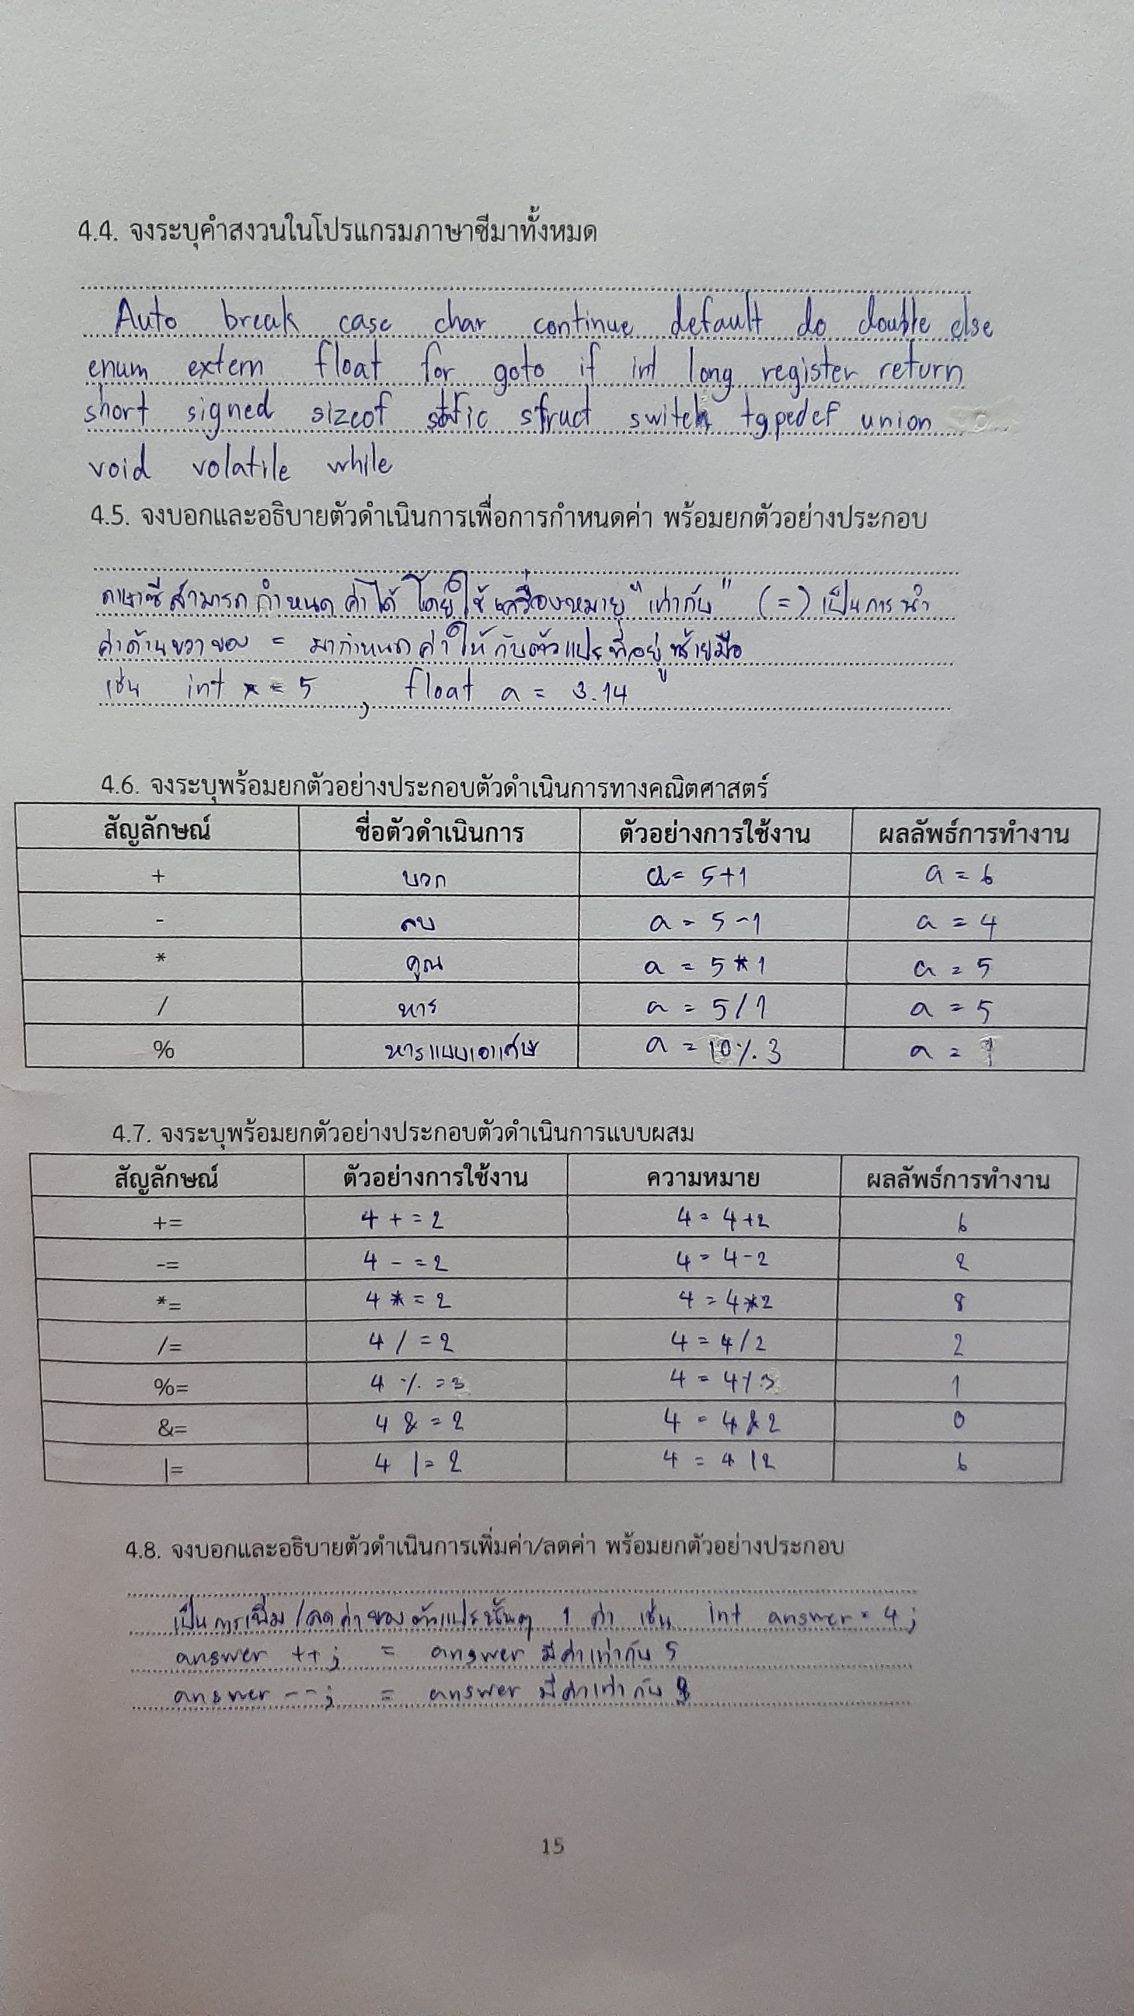 4.4. จงระบุคำสงวนในโปรแกรมภาษาซีมาทั้งหมด
Auto break case char continue default do double else
enum extern float for goto if int long register return
short signed sizeof static struct switch typedef union
void volatile while
4.5. จงบอกและอธิบายตัวดำเนินการเพื่อการกำหนดค่า พร้อมยกตัวอย่างประกอบ
ภาษาซีสามารถกำหนดค่าได้โดยใช้เครื่องหมาย "เท่ากับ" (=) เป็นการนำ
ค่าด้านขวาของ = มากำหนดค่าให้กับตัวแปรที่อยู่ซ้ายมือ
เช่น int x = 5 , float a = 3.14
4.6. จงระบุพร้อมยกตัวอย่างประกอบตัวดำเนินการทางคณิตศาสตร์
สัญลักษณ์ ชื่อตัวดำเนินการ ตัวอย่างการใช้งาน ผลลัพธ์การทำงาน
+ บวก a = 5+1 a = 6
- ลบ a = 5-1 a = 4
* คูณ a = 5*1 a = 5
/ หาร a = 5/1 a = 5
% หารแบบเอาเศษ a = 10%3 a = 1
4.7. จงระบุพร้อมยกตัวอย่างประกอบตัวดำเนินการแบบผสม
สัญลักษณ์ ตัวอย่างการใช้งาน ความหมาย ผลลัพธ์การทำงาน
+= 4 += 2 4 = 4+2 6
-= 4 -= 2 4 = 4-2 2
*= 4 *= 2 4 = 4*2 8
/= 4 /= 2 4 = 4/2 2
%= 4 %= 3 4 = 4%3 1
&= 4 &= 2 4 = 4&2 0
|= 4 |= 2 4 = 4|2 6
4.8. จงบอกและอธิบายตัวดำเนินการเพิ่มค่า/ลดค่า พร้อมยกตัวอย่างประกอบ
เป็นการเพิ่ม/ลดค่าของตัวแปรนั้นๆ 1 ค่า เช่น int answer = 4;
answer ++; = answer มีค่าเท่ากับ 5
answer --; = answer มีค่าเท่ากับ
15